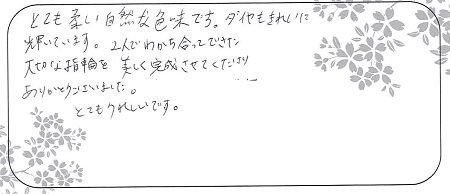 とても柔い自然な色味です。ダイヤもきれいに
光いています。2人でわかち合ってできた
大切な指輪を美しく完成させてくださり
ありがとうございました。
とてもうれしいです。